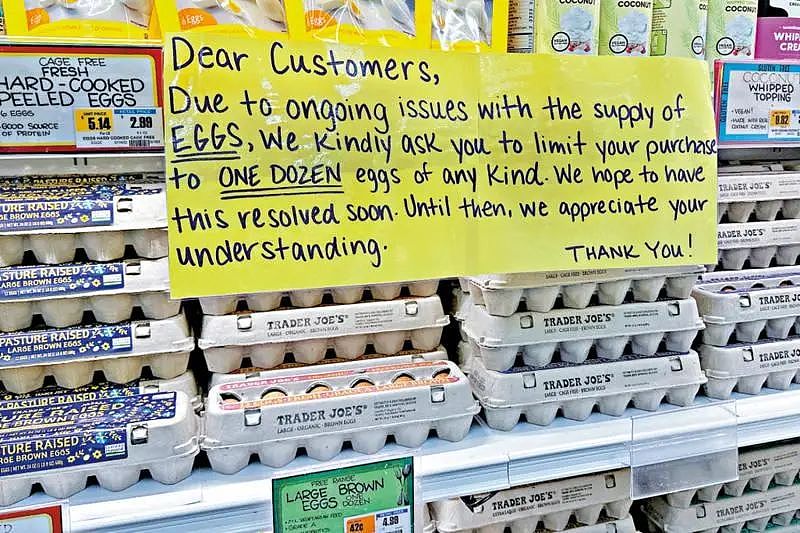 Eggs
Eggs
Eggs
COCONUT
VEGAN
COCONUT
CAGE FREE
FRESH
HARD-COOKED
PEELED EGGS
6 EGGS
GOOD SOURCE
OF PROTEIN
5.14
2.99
Dear Customers,
Due to ongoing issues with the supply of
EGGS, We kindly ask you to limit your purchase
to ONE DOZEN eggs of any kind. We hope to have
this resolved soon. Until then, we appreciate your
understanding.
THANK YOU!
GLUTEN FREE
COCONUT
WHIPPED
TOPPING
VEGAN!
PASTURE RAISED
LARGE BROWN EGGS
PASTURE RAISED
LARGE BROWN EGGS
PASTURE RAISED
LARGE BROWN EGGS
PASTURE RAISED
PASTURE RAISED
TRADER JOE'S
TRADER JOE'S
TRADER JOE'S
TRADER JOE'S
LARGE · ORGANIC · BROWN EGGS
TRADER JOE'S
TRADER JOE'S
TRADER JOE'S
TRADER JOE'S
FREE RANGE
LARGE BROWN
EGGS ONE DOZEN
GRADE A
42¢
4.99
TRADER JOE'S
TRADER JOE'S
TRADER JOE'S